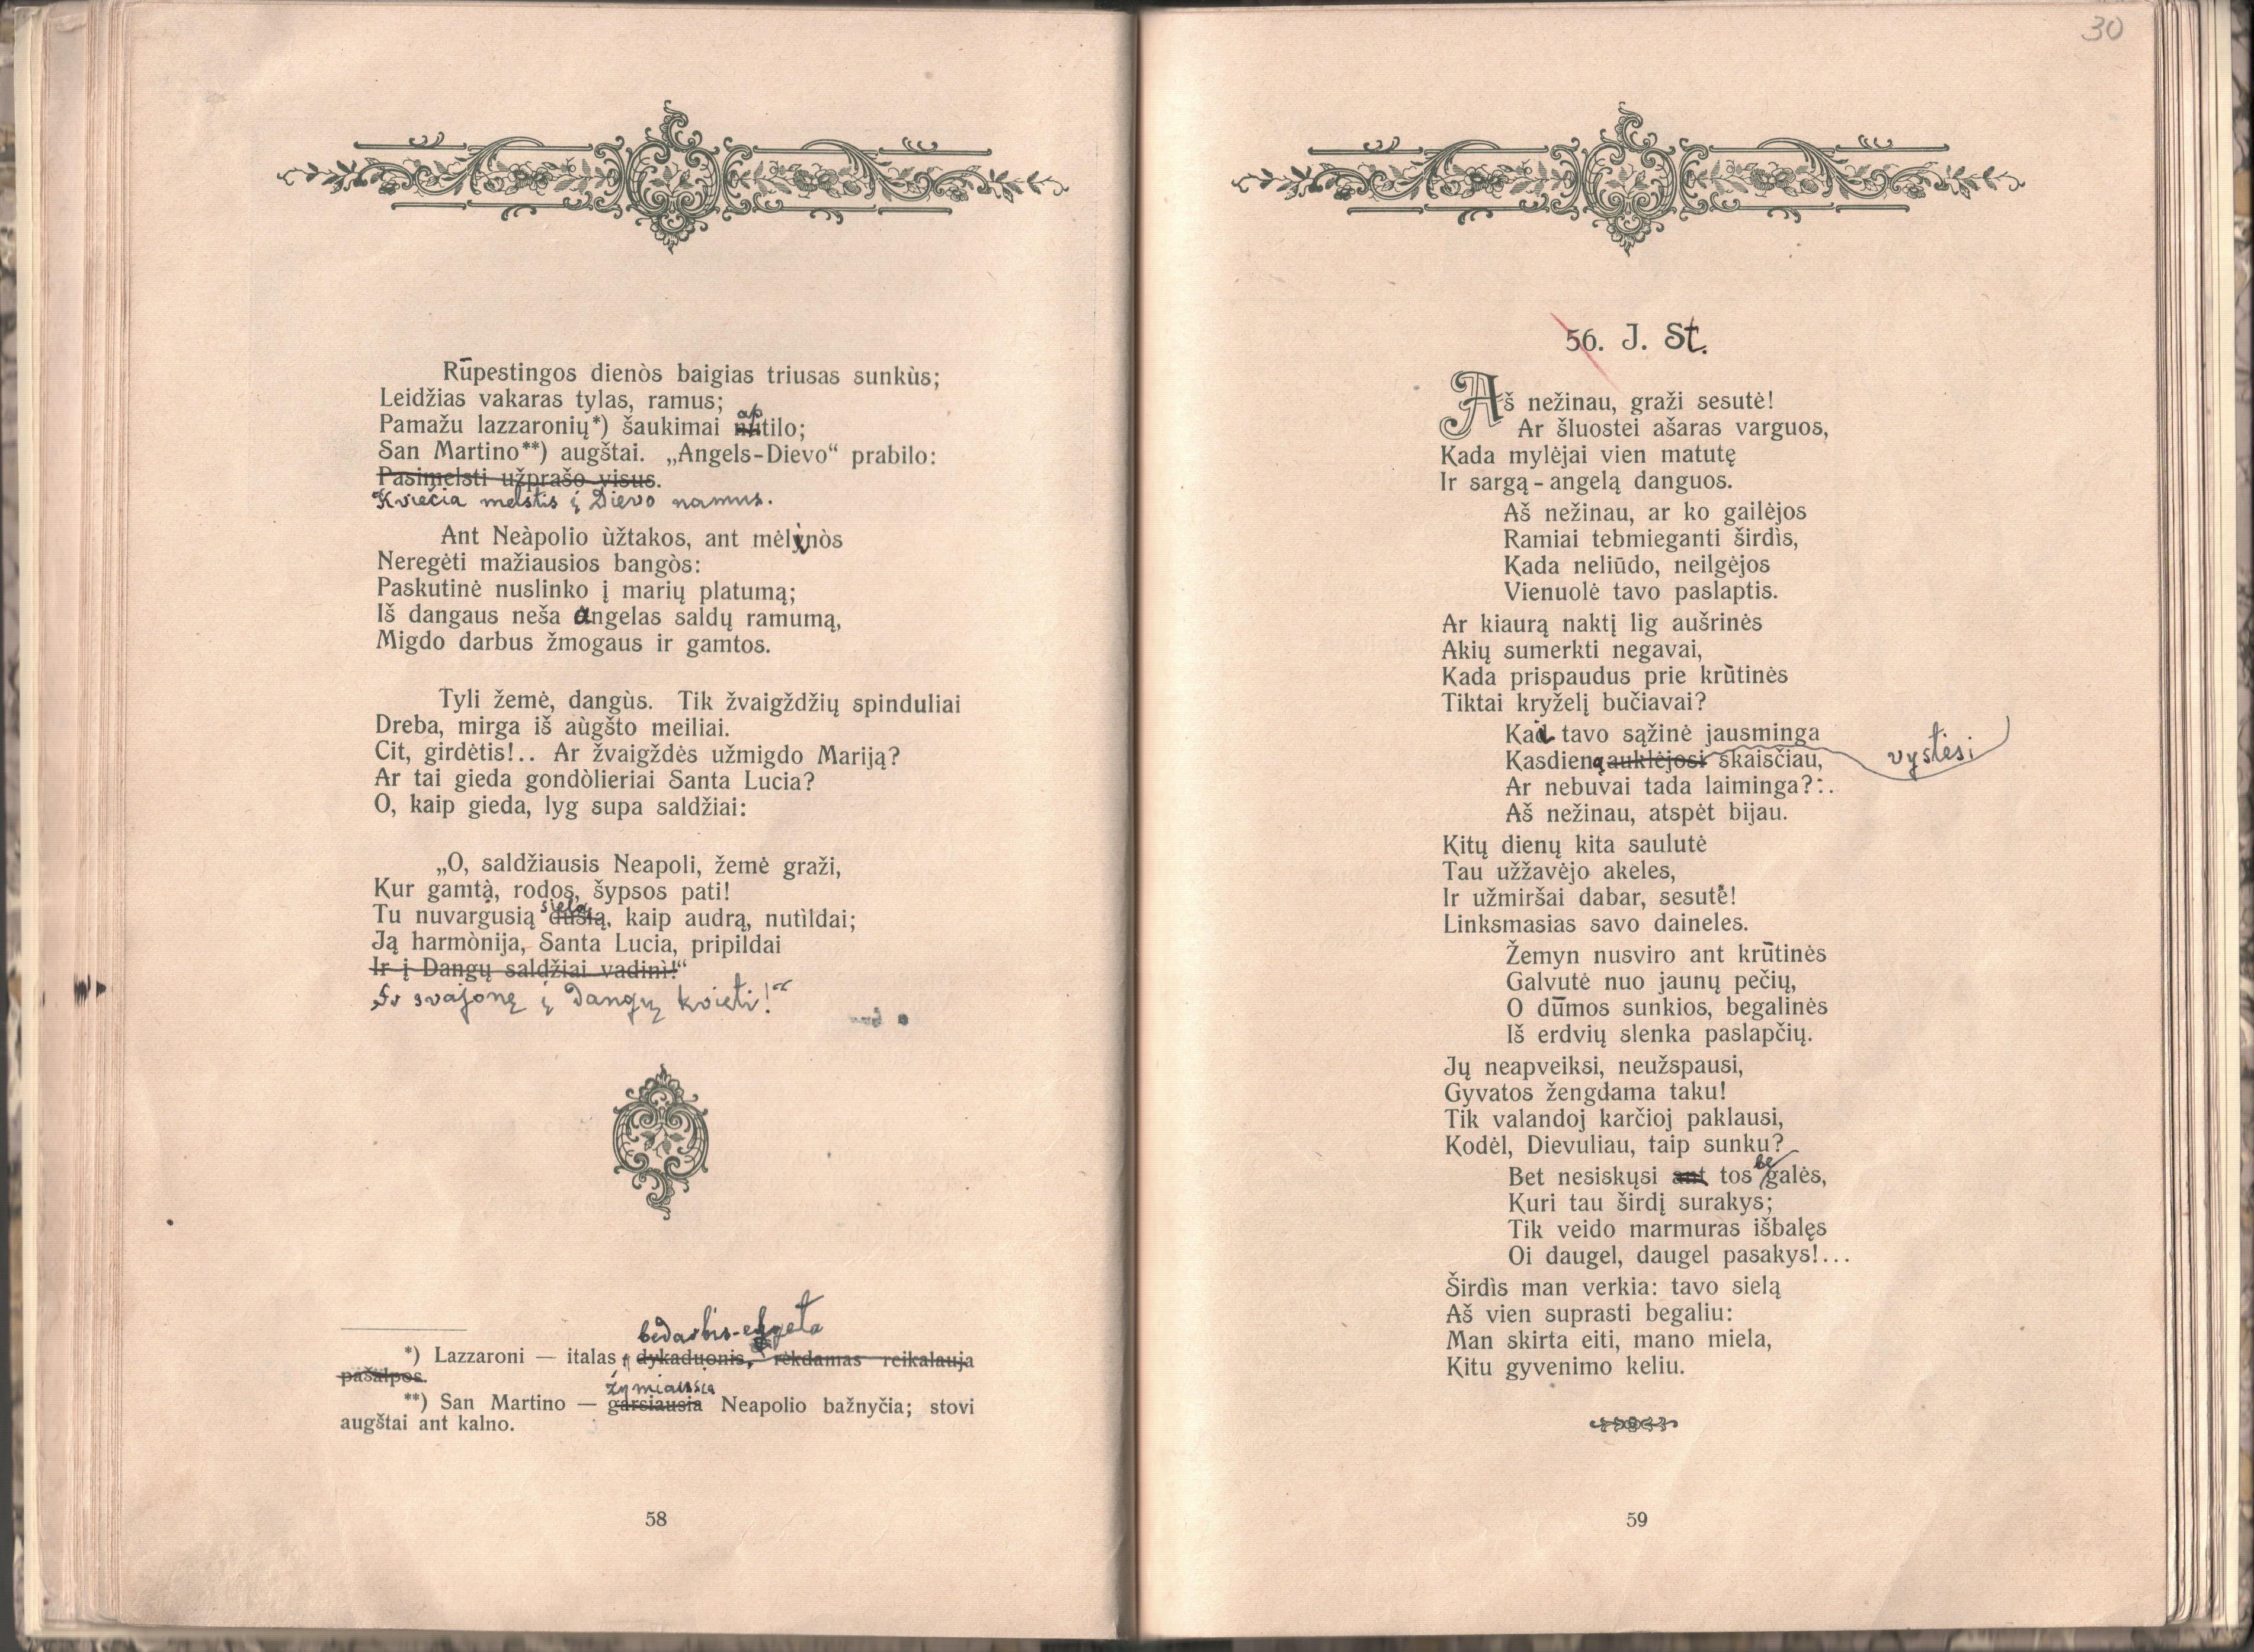 30
Rūpestingos dienòs baigias triusas sunkùs;
Leidžias vakaras tylas, ramus;
ap
Pamažu lazzaronių*) šaukimai nutilo;
San Martino**) augštai. „Angels-Dievo“ prabilo:
Pasimelsti užprašo visus.
Kviečia melstis į Dievo namus.
Ant Neàpolio ùžtakos, ant mėlynòs
Neregėti mažiausios bangòs:
Paskutinė nuslinko į marių platumą;
Iš dangaus neša angelas saldų ramumą,
Migdo darbus žmogaus ir gamtos.
Tyli žemė, dangùs. Tik žvaigždžių spinduliai
Dreba, mirga iš aùgšto meiliai.
Cit, girdėtis!.. Ar žvaigždės užmigdo Mariją?
Ar tai gieda gondòlieriai Santa Lucia?
O, kaip gieda, lyg supa saldžiai:
„O, saldžiausis Neapoli, žemė graži,
Kur gamtà, rodos, šypsos pati!
sielą
Tu nuvargusią dušią, kaip audrą, nutìldai;
Ją harmònija, Santa Lucia, pripildai
Ir į Dangų saldžiai vadinì!“
Ir svajonę į Dangų kvieti!“
bedarbis-elgeta
*) Lazzaroni — italas, dykaduonis, rėkdamas reikalauja
pašalpos.
žymiausia
**) San Martino — garsiausia Neapolio bažnyčia; stovi
augštai ant kalno.
58
56. J. St.
Aš nežinau, graži sesutė!
Ar šluostei ašaras varguos,
Kada mylėjai vien matutę
Ir sargą-angelą danguos.
Aš nežinau, ar ko gailėjos
Ramiai tebmieganti širdìs,
Kada neliūdo, neilgėjos
Vienuolė tavo paslaptis.
Ar kiaurą naktį lig aušrinės
Akių sumerkti negavai,
Kada prispaudus prie krūtinės
Tiktai kryželį bučiavai?
Kad tavo sąžinė jausminga
Kasdieną auklėjosi skaisčiau, vystėsi
Ar nebuvai tada laiminga?..
Aš nežinau, atspėt bijau.
Kitų dienų kita saulutė
Tau užžavėjo akeles,
Ir užmiršai dabar, sesutė!
Linksmasias savo daineles.
Žemyn nusviro ant krūtinės
Galvutė nuo jaunų pečių,
O dūmos sunkios, begalinės
Iš erdvių slenka paslapčių.
Jų neapveiksi, neužspausi,
Gyvatos žengdama taku!
Tik valandoj karčioj paklausi,
Kodėl, Dievuliau, taip sunku?
be
Bet nesiskųsi ant tos galės,
Kuri tau širdį surakys;
Tik veido marmuras išbalęs
Oi daugel, daugel pasakys!...
Širdìs man verkia: tavo sielą
Aš vien suprasti begaliu:
Man skirta eiti, mano miela,
Kitu gyvenimo keliu.
59